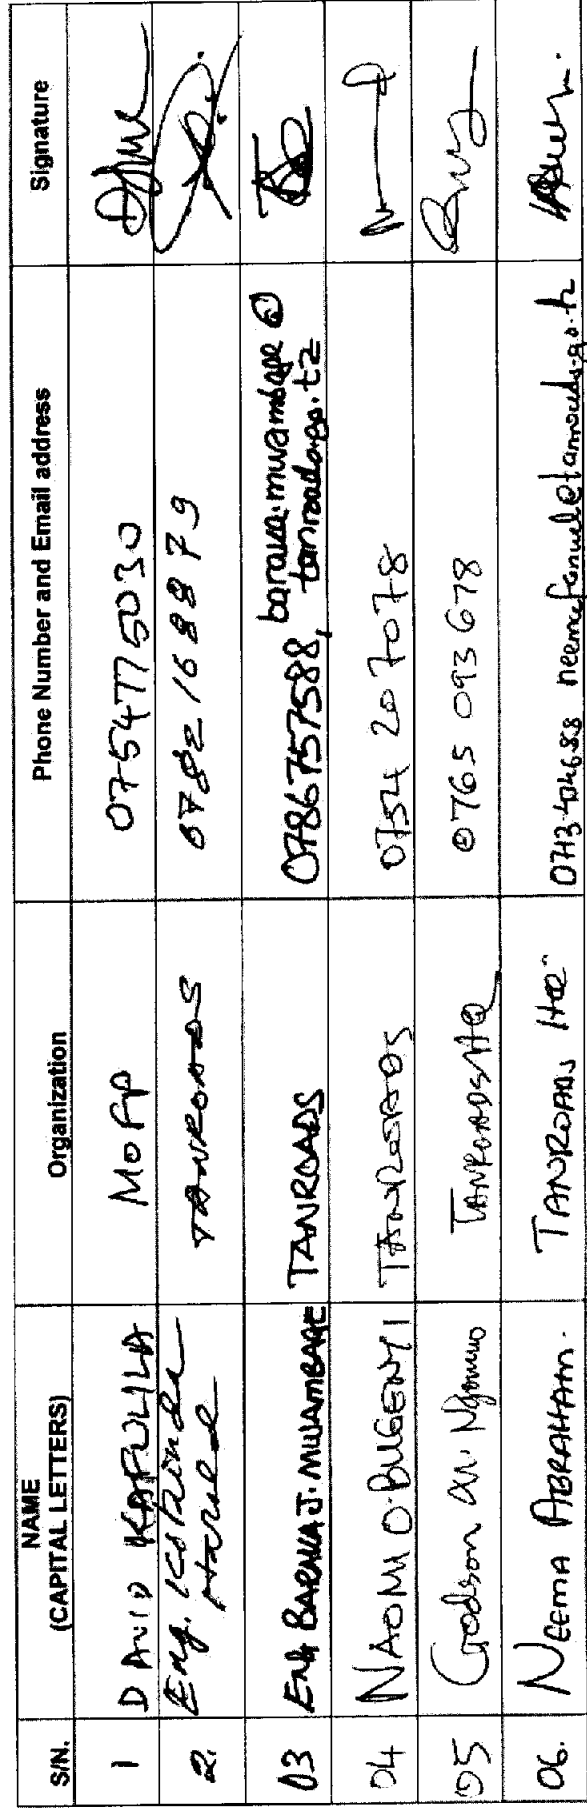 S/N. NAME (CAPITAL LETTERS) Organization Phone Number and Email address Signature
1 DAVID KAFULILA MOFP 0754775030
2. Eng. TANROADS 0782168879
03 ENG BARAKA J. MWAMBAGE TANROADS 0786757588, baraka.mwambage@
tanroads.go.tz
04 NAOMI O. BUGENYI TANROADS 0754 207078
05 Godson TANROADS HQ 0765 093678
06. NEEMA ABRAHAM. TANROADS HQ